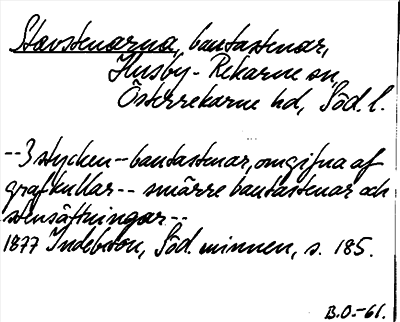 Stavstenarna, bautastenar,
Husby-Rekarne sn,
Österrekarne hd, Söd. l.
--3 stycken--bautastenar, omgifna af
grafkullar-- smärre bautastenar och
stensättningar--
1877 Indebetou, Söd. minnen, s. 185.
B.O.-61.